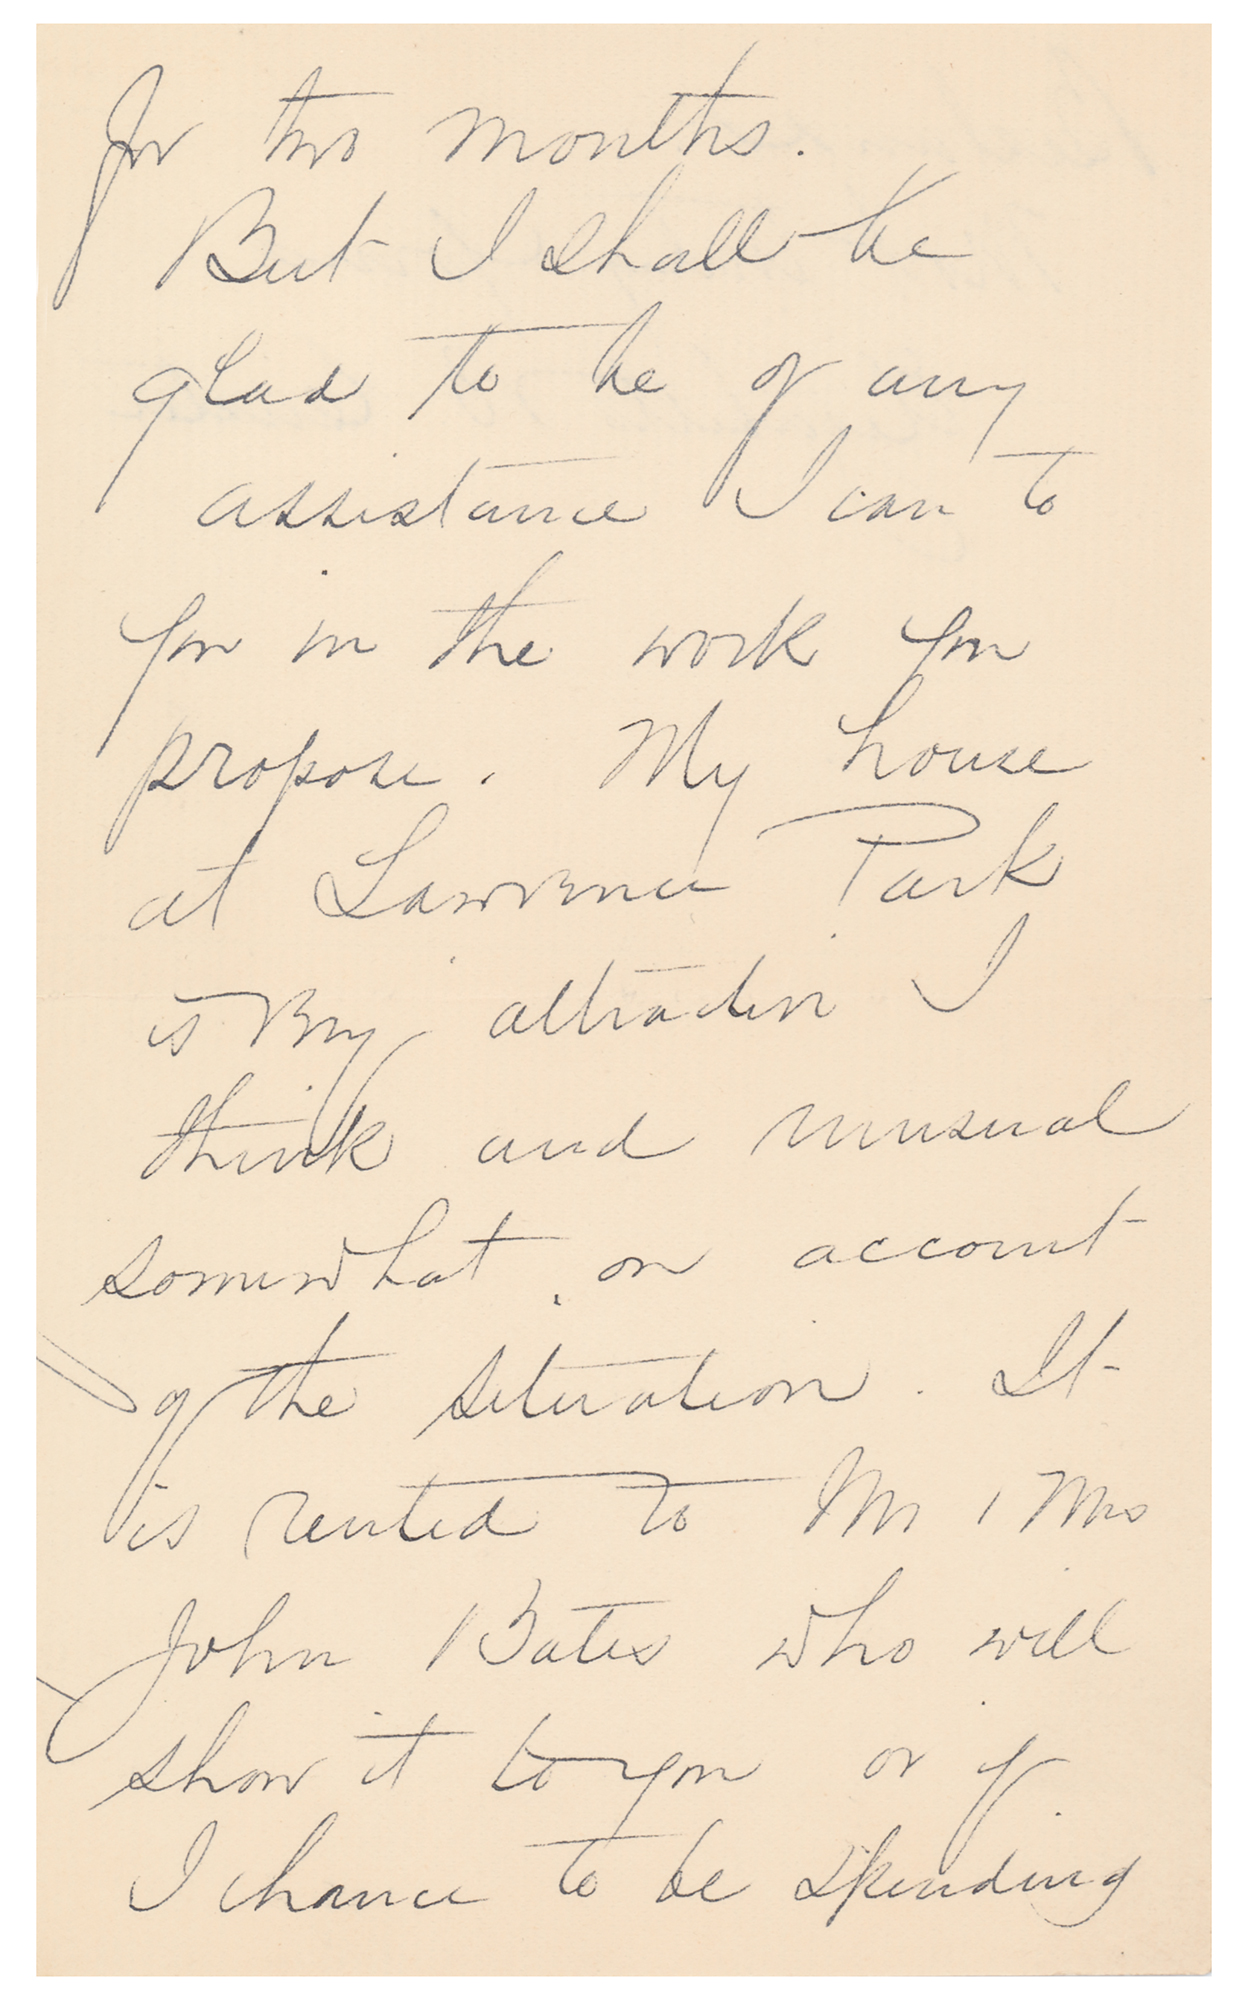 for two months.
But I shall be
glad to be of any
assistance I can to
you in the work you
propose. My house
at Lawrence Park
is very attractive I
think and unusual
somewhat on account
of the situation. It
is rented to Mr & Mrs
John Bates who will
show it to you or if
I chance to be spending